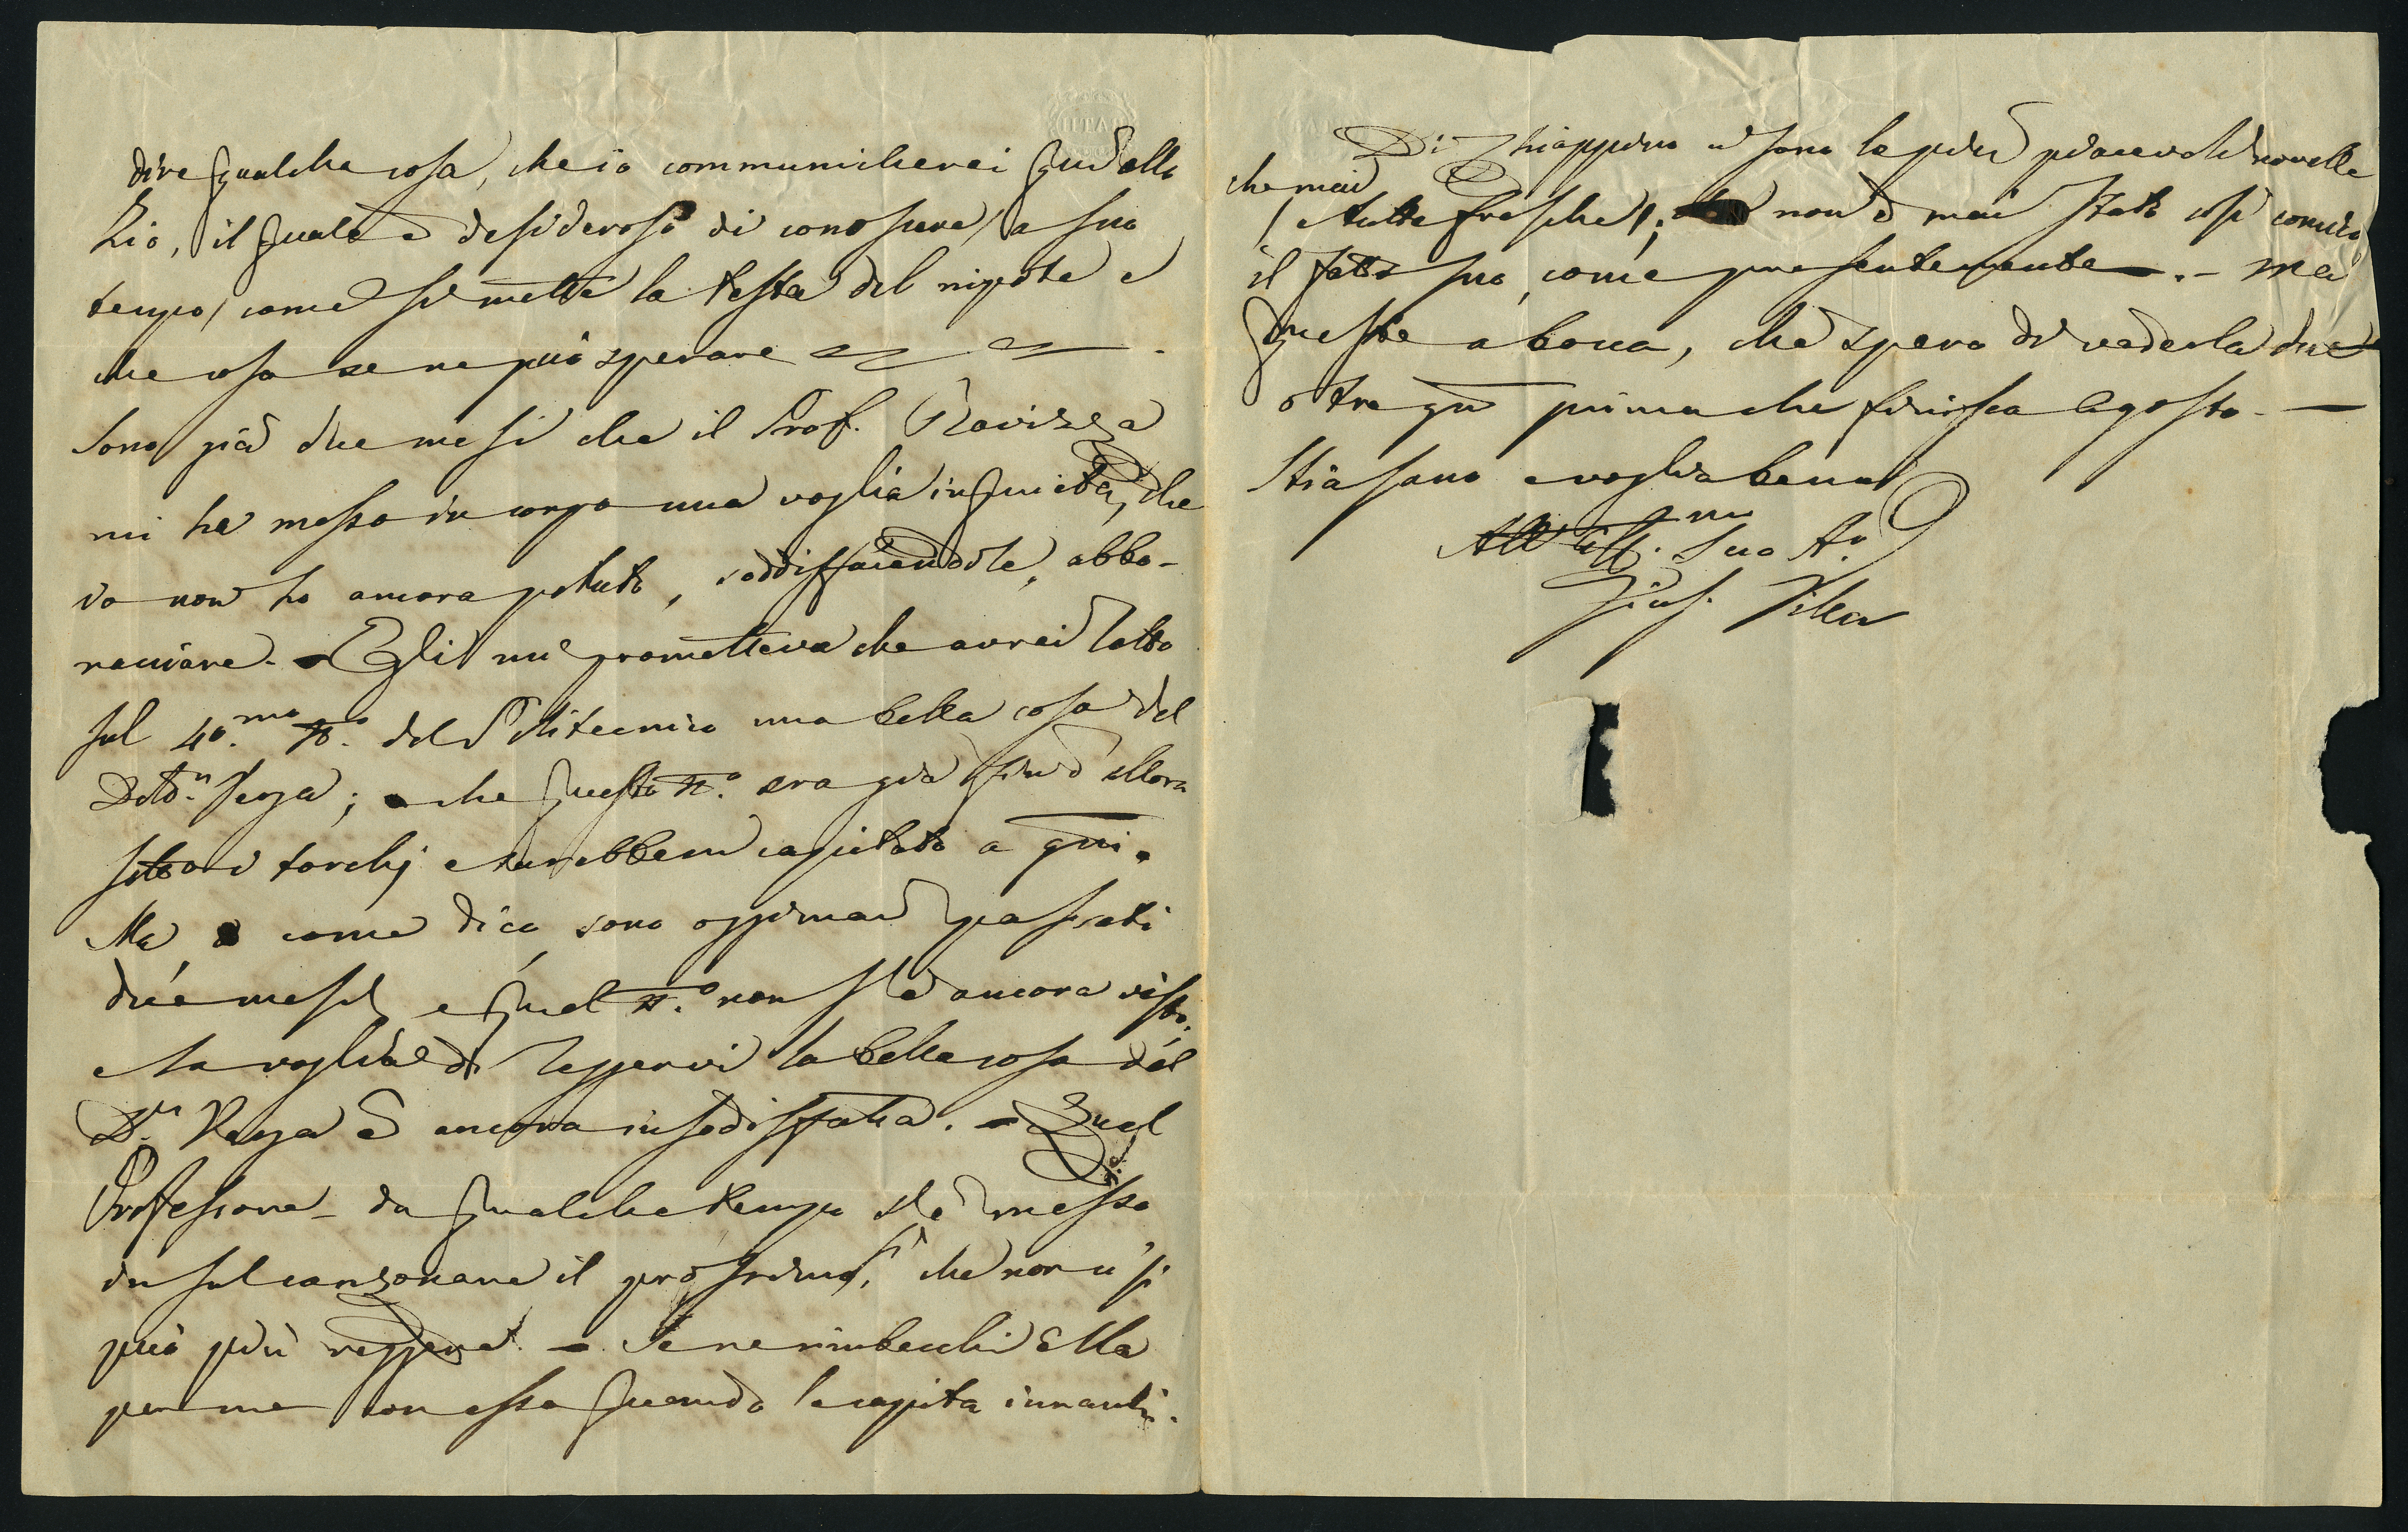 dire qualche cosa, che io communicherei qui allo
Zio, il quale è desideroso di conoscere (a suo
tempo) come si mette la testa del nipote e
che cosa se ne può sperare
Sono già due mesi che il Prof. Ravizza
mi ha messo in corpo una voglia inquieta, che
io non ho ancora potuto, soddisfacendola, abbo-
nacciare. - Egli mi prometteva che avrei letto
sul 40.mo N.o del Politecnico una bella cosa del
Dott.r Verga; che questo N.o era già fin d'allora
sotto i torchj e sarebbemi capitato a gni.
Ma come dico, sono oggimai passati
due mesi, e quel N.o non s'è ancora visto,
e la voglia di leggervi la bella cosa del
D.r Verga è ancora insodisfatta. - Quel
Professore da qualche tempo s'è messo
in sul canzonare il prossimo, sì che non ci si
può più reggere. - Se ne rimbecchi Ella
per me con esso quando le capita innanzi.
Di Chiappino ci sono le più piacevoli novelle
che mai
(e tutte fresche); non è mai stato così comico
il fatto suo, come presentemente. - Ma
queste a bocca, chè spero di vederla due
o tre gni prima che finisca Agosto. -
Stia sano e voglia bene
All' Aff.mo Suo A.o
Gius.